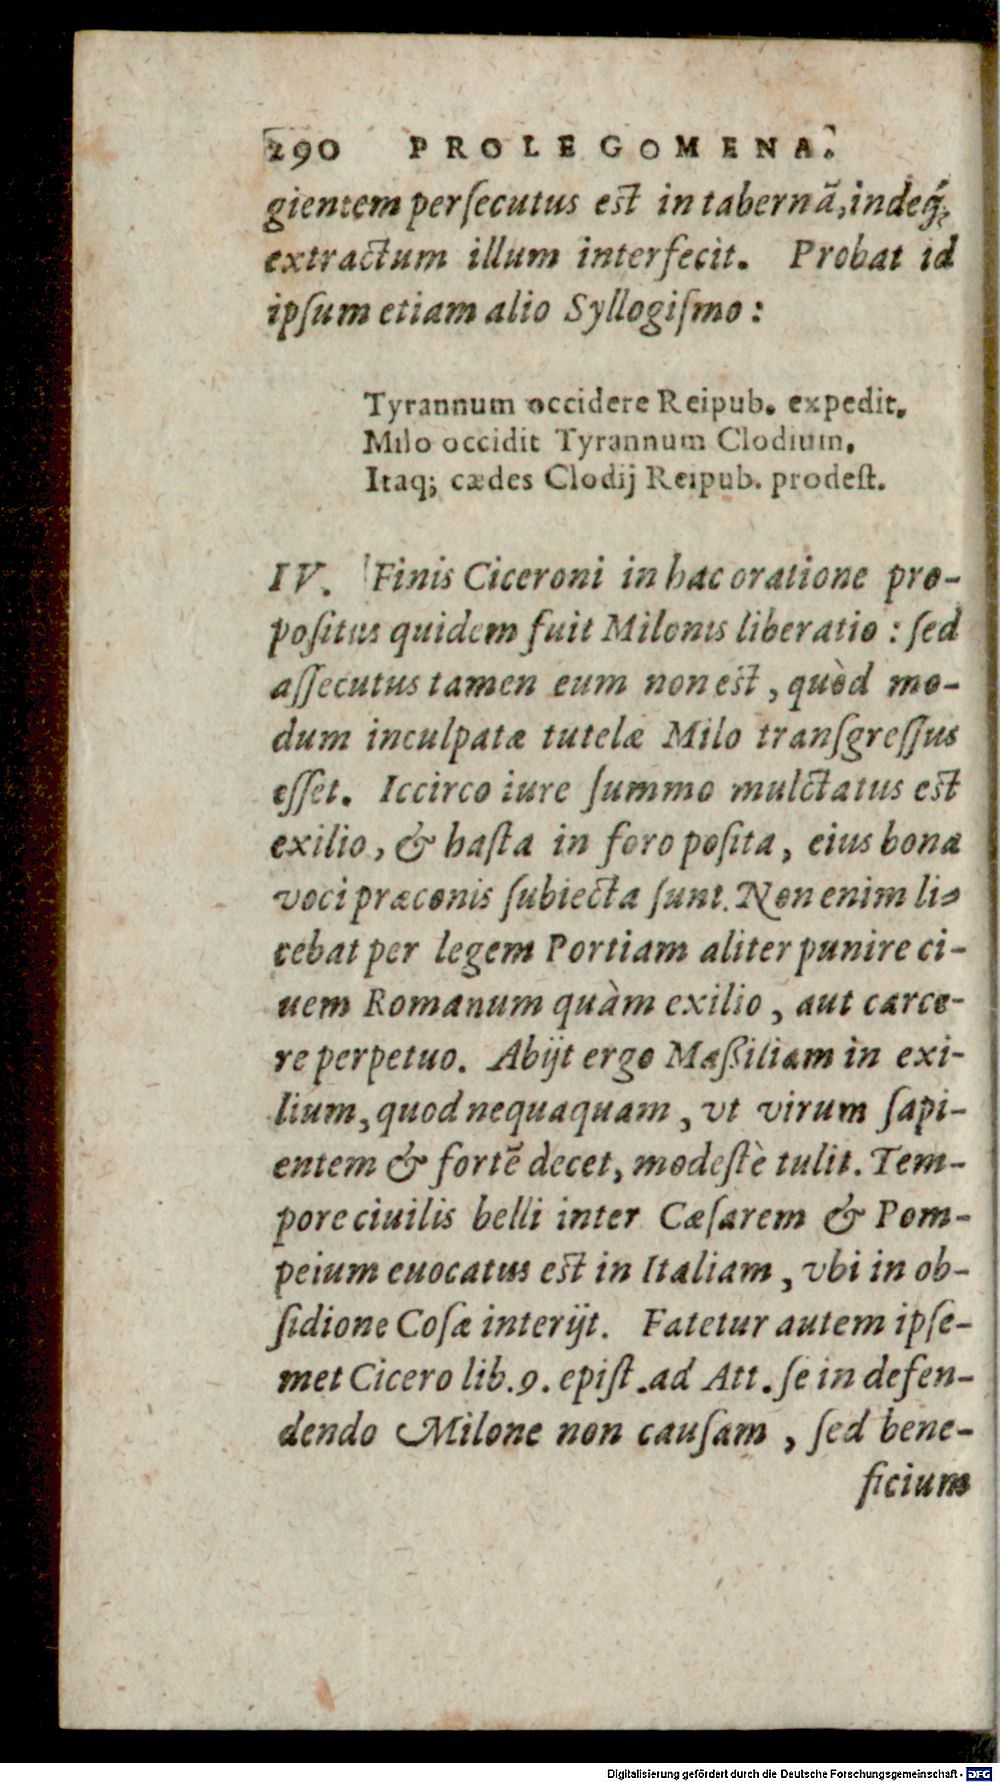 290 PROLEGOMENA.
gientem perſecutus est in tabernã, indeq́;
extractum illum interfecit. Probat id
ipſum etiam alio Syllogiſmo:
Tyrannum occidere Reipub. expedit.
Milo occidit Tyrannum Clodium.
Itaq; cædes Clodij Reipub. prodeſt.
IV. Finis Ciceroni in hac oratione pro-
poſitus quidem fuit Milonis liberatio: ſed
aſſecutus tamen eum non est, quòd mo-
dum inculpatæ tutelæ Milo tranſgreſſus
eſſet. Iccirco iure ſummo mulctatus est
exilio, & haſta in foro poſita, eius bona
voci præconis ſubiecta ſunt. Non enim li-
cebat per legem Portiam aliter punire ci-
uem Romanum quàm exilio, aut carce-
re perpetuo. Abijt ergo Maßiliam in exi-
lium, quod nequaquam, vt virum ſapi-
entem & fortẽ decet, modeſtè tulit. Tem-
pore ciuilis belli inter Cæſarem & Pom-
peium euocatus est in Italiam, vbi in ob-
ſidione Coſæ interijt. Fatetur autem ipſe-
met Cicero lib. 9. epiſt. ad Att. ſe in defen-
dendo Milone non cauſam, ſed bene-
ficium
Digitalisierung gefördert durch die Deutsche Forschungsgemeinschaft - DFG